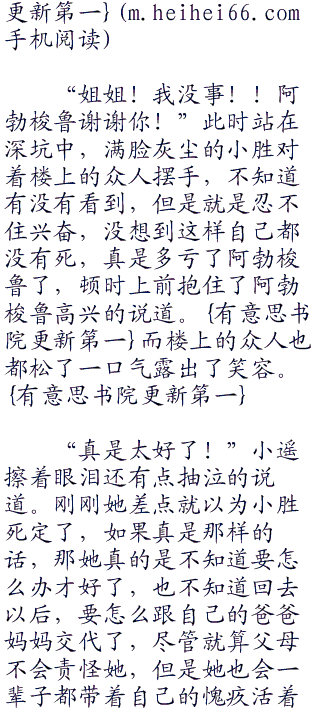 更新第一}(m.heihei66.com
手机阅读)
“姐姐!我没事!!阿
勃梭鲁谢谢你!”此时站在
深坑中,满脸灰尘的小胜对
着楼上的众人摆手,不知道
有没有看到,但是就是忍不
住兴奋,没想到这样自己都
没有死,真是多亏了阿勃梭
鲁了,顿时上前抱住了阿勃
梭鲁高兴的说道。{有意思书
院更新第一}而楼上的众人也
都松了一口气露出了笑容。
{有意思书院更新第一}
“真是太好了!”小遥
擦着眼泪还有点抽泣的说
道。刚刚她差点就以为小胜
死定了,如果真是那样的
话,那她真的是不知道要怎
么办才好了,也不知道回去
以后,要怎么跟自己的爸爸
妈妈交代了,尽管就算父母
不会责怪她,但是她也会一
辈子都带着自己的愧疚活着